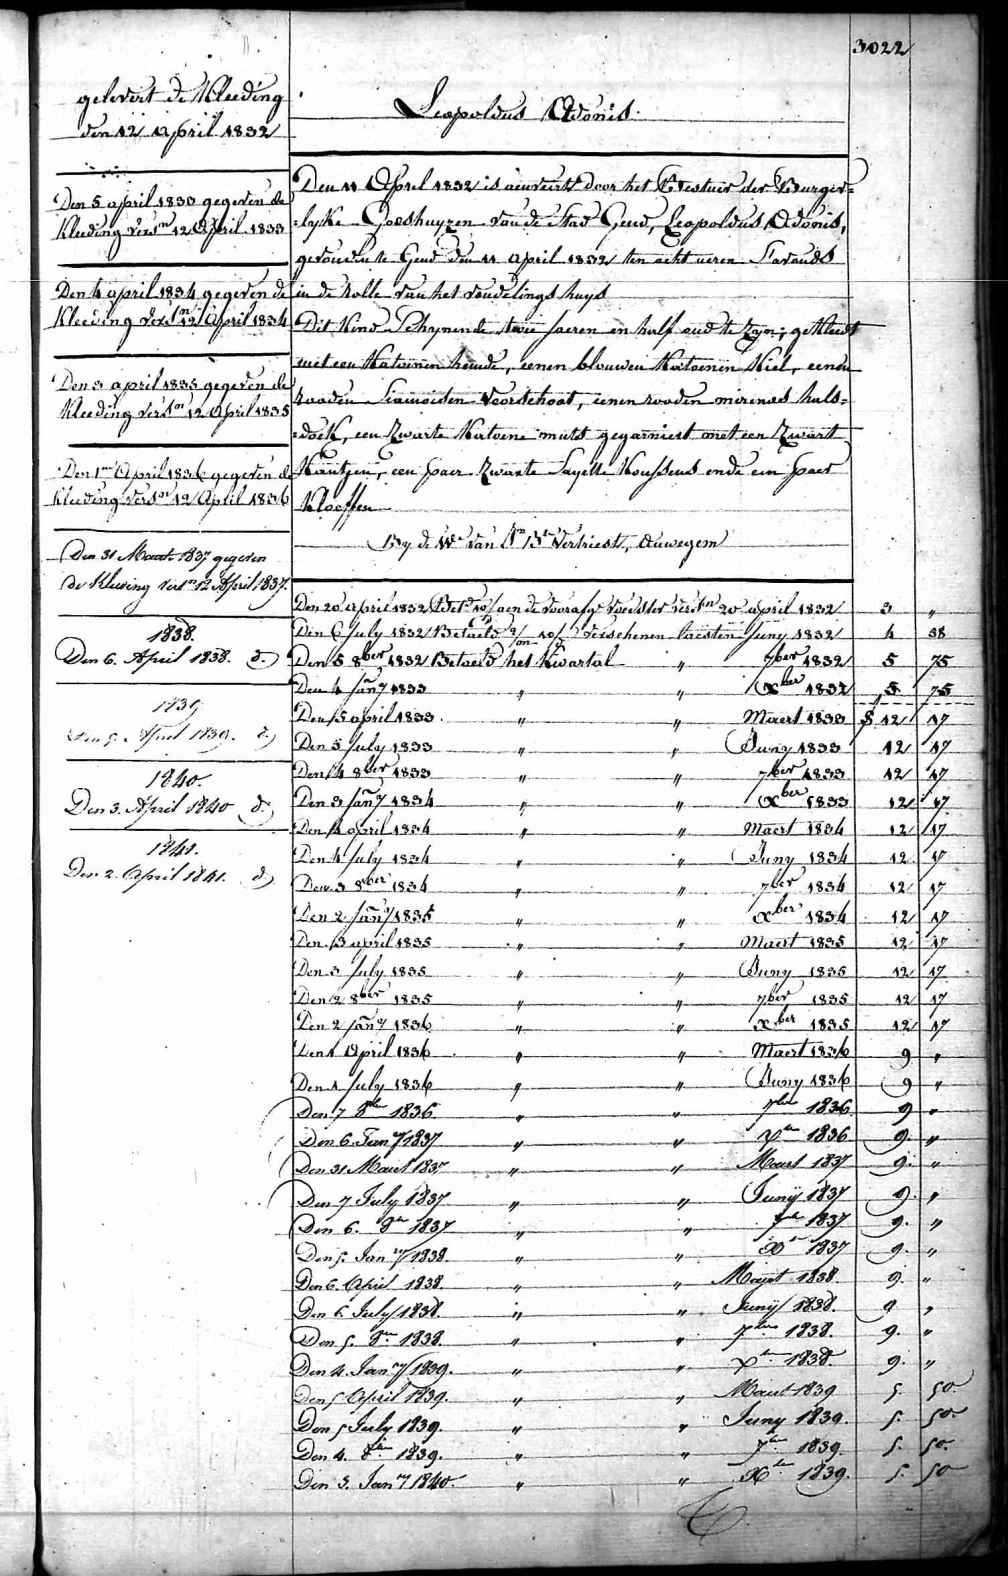 3022
gelevert de Kleeding
den 12 april 1832
Den 5 april 1833 gegeven de
Kleeding vers.en 12 April 1833
Den 4 april 1834 gegeven de
Kleeding vers.en 12 April 1834
Den 3 april 1835 gegeven de
Kleeding vers.en 12 April 1835
Den 1en April 1836 gegeven de
Kleeding vers.en 12 April 1836
Den 31 Maart 1837 gegeven
de Kleeding vers.en 12 April 1837.
1838.
Den 6. April 1838. d.)
1839
Den 5. April 1839. d.)
1840.
Den 3. April 1840 d.)
1841.
Den 2. April 1841. d)
Leopoldus Adonis.
Den 11 April 1832 is door het Bestuur der Burger=
=lyke Godshuyzen van de Stad Gend, Leopoldus Adonis,
gevonden te Gend den 11 April 1832 ten acht ueren S'avonds
in de Rolle van het vondelings huys
Dit Kind Schynende twee jaeren en half oud te zyn, gekleedt
met een Katoenen hemde, eenen blauwen Katoenen Kiel, eenen
rooden Siamoisen Voorschoot, eenen rooden merinos hals=
=doek, een Zwarte Katoene muts gegarniert met een Zwart
Kantjen, een paer Zwarte Sayette Koussens ende een paer
Kloeffen
By de We van Verriest, Auwegem
Den 20 april 1832 aen de voorafge voedster 20 april 1832 3 "
Den 6 July 1832 Betaeld verschenen laesten Juny 1832 4 38
Den 5 8ber 1832 Betaeld het Kwartal " 7ber 1832 5 75
Den 4 Jany 1833 " " Xber 1832 5 75
Den 5 april 1833 " " Maert 1833 12 17
Den 5 July 1833 " " Juny 1833 12 17
Den 4 8ber 1833 " " 7ber 1833 12 17
Den 3 Jany 1834 " " Xber 1833 12 17
Den 4 april 1834 " " Maert 1834 12 17
Den 4 July 1834 " " Juny 1834 12 17
Den 3 8ber 1834 " " 7ber 1834 12 17
Den 2 Jany 1835 " " Xber 1834 12 17
Den 3 april 1835 " " Maert 1835 12 17
Den 3 July 1835 " " Juny 1835 12 17
Den 2 8ber 1835 " " 7ber 1835 12 17
Den 2 Jany 1836 " " Xber 1835 12 17
Den 1 April 1836 " " Maert 1836 9 "
Den 1 July 1836 " " Juny 1836 9 "
Den 7 8bre 1836 " " 7bre 1836 9 "
Den 6. Jany 1837 " " Xbre 1836 9. "
Den 31 Maart 1837 " " Maart 1837 9. "
Den 7 July 1837 " " Junij 1837 9. "
Den 6. 8bre 1837 " " 7bre 1837 9. "
Den 5. Jany 1838. " " Xbre 1837 9. "
Den 6. April 1838. " " Maart 1838. 9. "
Den 6 July 1838. " " Junij 1838. 9 "
Den 5. 8bre 1838. " " 7bre 1838. 9. "
Den 4. Jany 1839. " " Xbre 1838. 9. "
Den 5 April 1839. " " Maart 1839 5. 50.
Den 5 July 1839. " " Juny 1839. 5. 50.
Den 4. 8bre 1839. " " 7bre 1839. 5. 50.
Den 3. Jany 1840. " " Xbre 1839. 5. 50